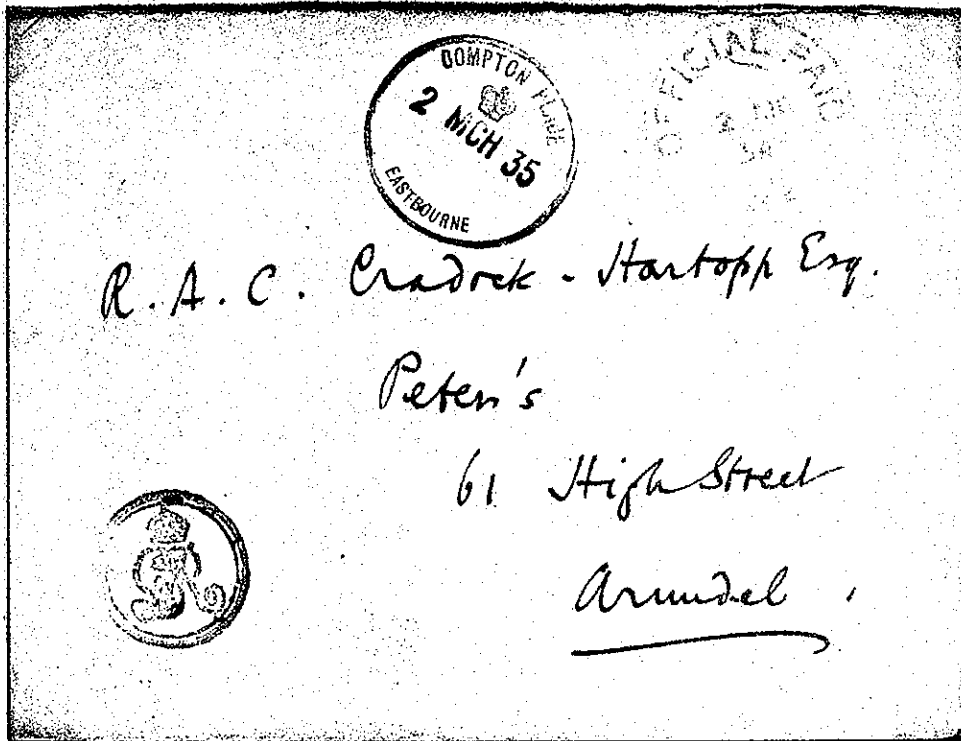 COMPTON PLACE
2 MCH 35
EASTBOURNE
OFFICIAL PAID
R. A. C. Cradock - Hartopp Esq.
Peter's
61 High Street
Arundel.
GR